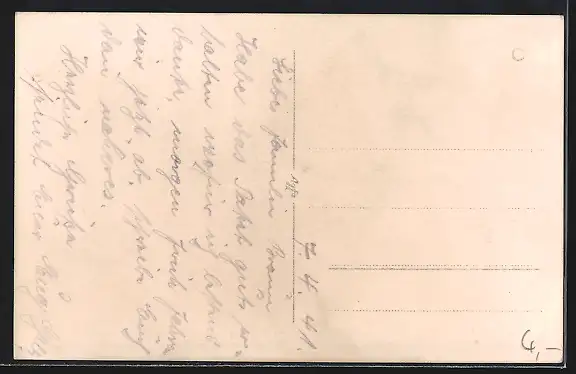 7. 4. 41.
Liebe Familie Braun
Habe das Paket gut er-
halten wofür ich bestens
danke, morgen früh fahren
wir jetzt ab. Schreibe Euch
dann näheres.
Herzliche Grüße
sendet Euer
4,-